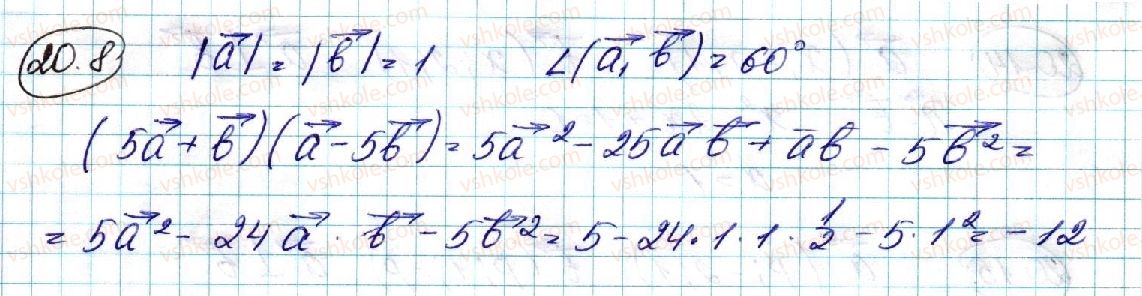 20.8 |a⃗| = |b⃗| = 1 ∠(a⃗, b⃗) = 60°
(5a⃗ + b⃗)(a⃗ - 5b⃗) = 5a⃗² - 25a⃗ b⃗ + a̅b - 5b⃗² =
= 5a⃗² - 24a⃗ · b⃗ - 5b⃗² = 5 - 24·1·1·1/2 - 5·1² = -12